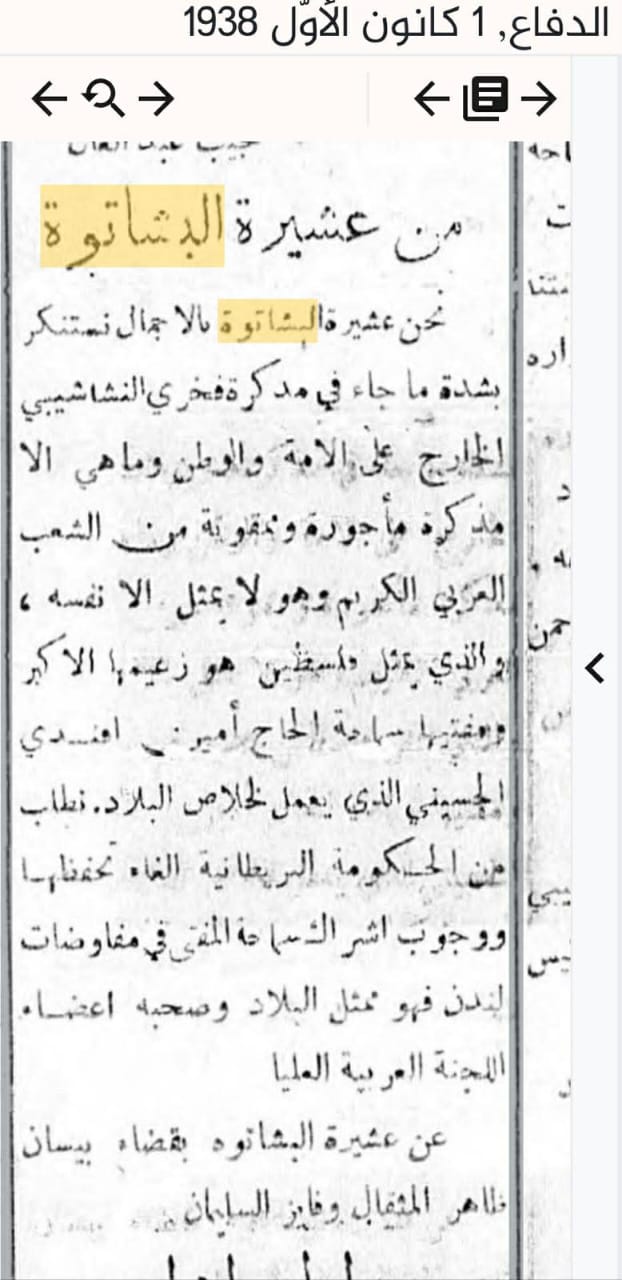 الدفاع, 1 كانون الأوّل 1938
من عشيرة البشاتوة
نحن عشيرة البشاتوة بالاجمال نستنكر
بشدة ما جاء في مذكرة فخري النشاشيبي
الخارج على الامة والوطن وما هي الا
مذكرة مأجورة وممقوتة من الشعب
العربي الكريم وهو لا يمثل الا نفسه ،
والذي يمثل فلسطين هو زعيمها الاكبر
ومفتيها سماحة الحاج أمين افندي
الحسيني الذي يعمل لخلاص البلاد. نطلب
من الحكومة البريطانية الغاء تحفظها
ووجوب اشراك سماحة المفتي في مفاوضات
لندن فهو ممثل البلاد وصحبه اعضاء
اللجنة العربية العليا
عن عشيرة البشاتوه بقضاء بيسان
ظاهر المثقال وفايز السليمان